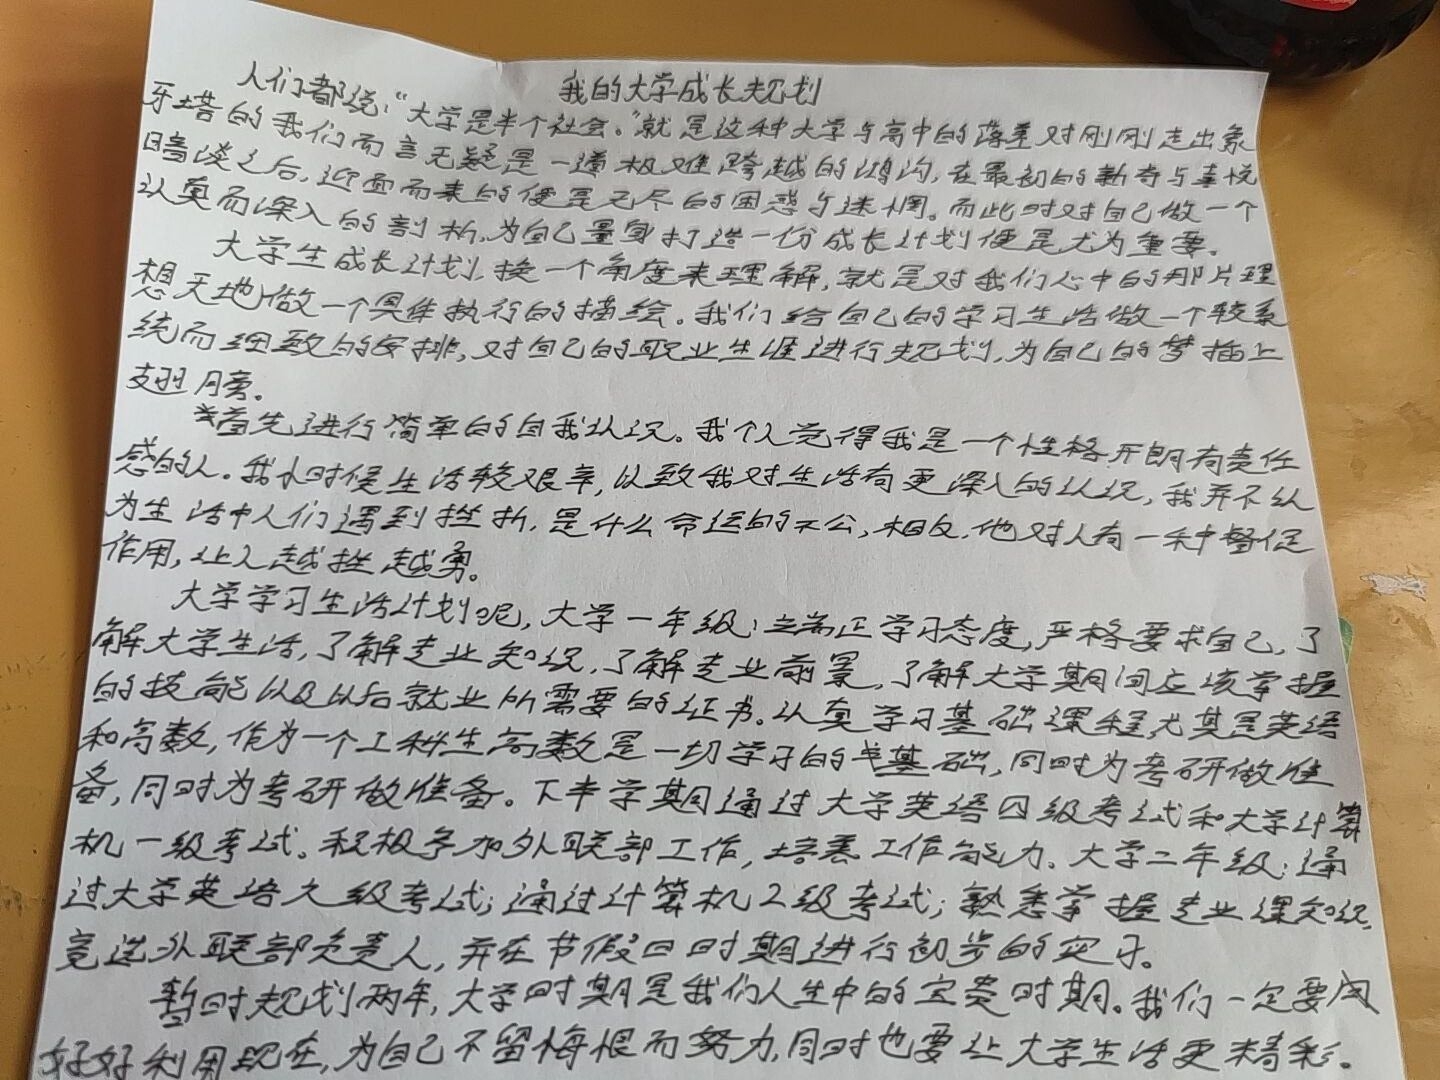 我的大学成长规划
人们都说:“大学是半个社会。”就是这种大学与高中的落差对刚刚走出象
牙塔的我们而言无疑是一道极难跨越的鸿沟,在最初的新奇与喜悦
暗淡之后,迎面而来的便是无尽的困惑与迷惘。而此时对自己做一个
认真而深入的剖析,为自己量身打造一份成长计划便是尤为重要。
大学生成长计划,换一个角度来理解,就是对我们心中的那片理
想天地做一个具体执行的描绘。我们给自己的学习生活做一个较系
统而细致的安排,对自己的职业生涯进行规划,为自己的梦插上
翅膀。
首先进行简单的自我认识。我个人觉得我是一个性格开朗有责任
感的人。我小时候生活较艰辛,以致我对生活有更深入的认识,我并不认
为生活中人们遇到挫折,是什么命运的不公,相反,他对人有一种督促
作用,让人越挫越勇。
大学学习生活计划呢,大学一年级:立端正学习态度,严格要求自己,了
解大学生活,了解专业知识,了解专业前景,了解大学期间应该掌握
的技能以及以后就业所需要的证书。认真学习基础课程尤其是英语
和高数,作为一个工科生高数是一切学习的基础,同时为考研做准
备,同时为考研做准备。下半学期通过大学英语四级考试和大学计算
机一级考试。积极参加外联部工作,培养工作能力。大学二年级:通
过大学英语六级考试;通过计算机2级考试;熟悉掌握专业课知识,
竞选外联部负责人,并在节假日时期进行初步的实习。
暂时规划两年,大学时期是我们人生中的宝贵时期。我们一定要
好好利用现在,为自己不留悔恨而努力,同时也要让大学生活更精彩。